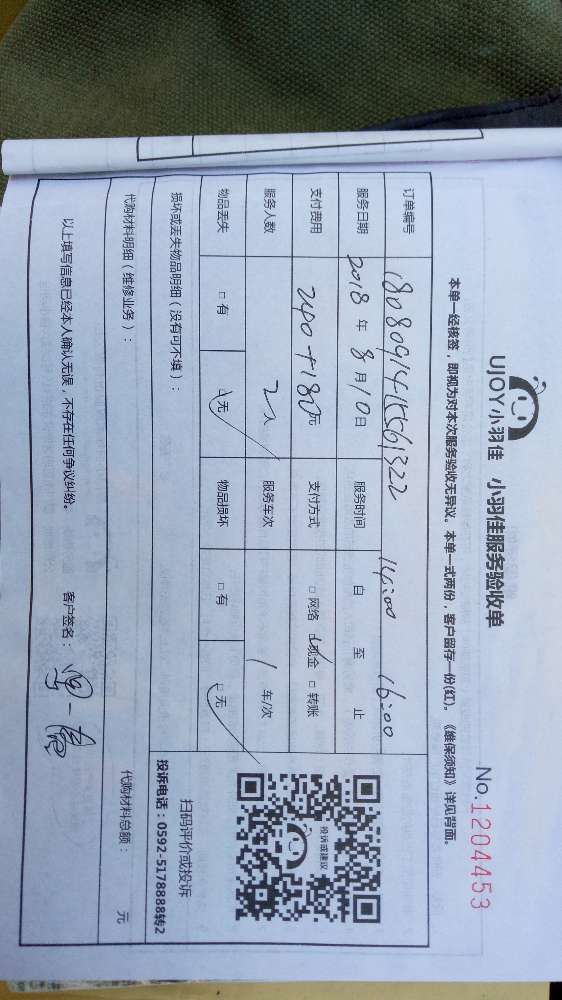 UJOY小羽佳 小羽佳服务验收单
No.1204453
本单一经核签，即视为对本次服务验收无异议。本单一式两份，客户留存一份(红)。《维保须知》详见背面。
订单编号
服务日期 2018 年 8 月 10 日 服务时间 14:00 自 至 16:00 止
支付费用 240+180元 支付方式 □ 网络 ☑现金 □ 转账
服务人数 2人 服务车次 1 车/次
物品丢失 □ 有 ☑无 物品损坏 □ 有 ☑无
投诉或建议
扫码评价或投诉
投诉电话：0592-5178888转2
损坏或丢失物品明细（没有可不填）：
代购材料明细（维修业务）： 代购材料总额： 元
以上填写信息已经本人确认无误，不存在任何争议纠纷。 客户签名：